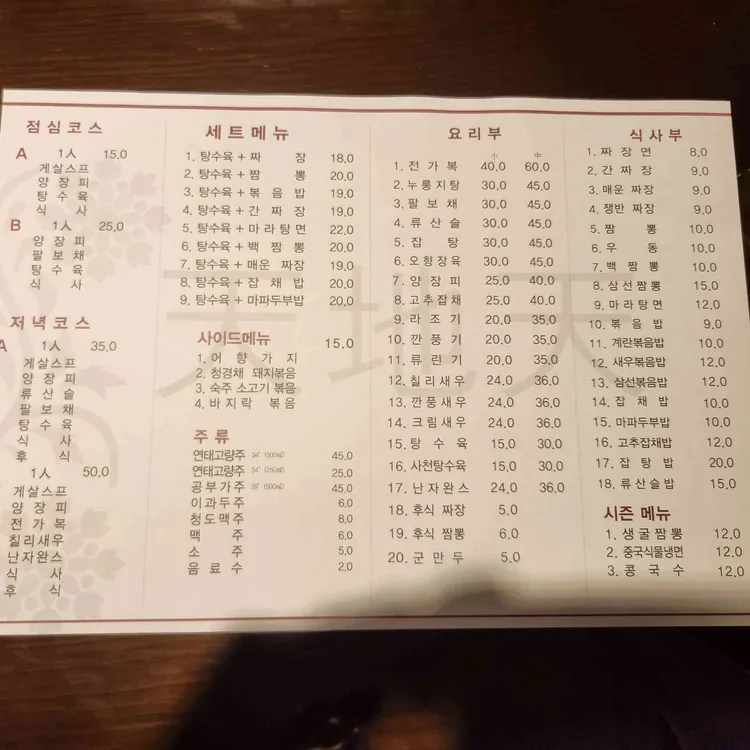 점심코스
A 1人 15.0
게살스프
양 장 피
탕 수 육
식 사
B 1人 25.0
양 장 피
팔 보 채
탕 수 육
식 사
저녁코스
A 1人 35.0
게살스프
양 장 피
류 산 슬
팔 보 채
탕 수 육
식 사
후 식
1人 50.0
게살스프
양 장 피
전 가 복
칠리새우
난자완스
식 사
후 식
세트메뉴
1. 탕수육 + 짜 장 18.0
2. 탕수육 + 짬 뽕 20.0
3. 탕수육 + 볶 음 밥 19.0
4. 탕수육 + 간 짜 장 19.0
5. 탕수육 + 마라탕면 22.0
6. 탕수육 + 백 짬 뽕 20.0
7. 탕수육 + 매운 짜장 19.0
8. 탕수육 + 잡 채 밥 20.0
9. 탕수육 + 마파두부밥 20.0
사이드메뉴 15.0
1. 어 향 가 지
2. 청경채 돼지볶음
3. 숙주 소고기 볶음
4. 바 지 락 볶 음
주 류
연태고량주 34° (500㎖) 45.0
연태고량주 34° (250㎖) 25.0
공부가주 39° (500㎖) 45.0
이과두주 6.0
청도맥주 8.0
맥 주 6.0
소 주 5.0
음 료 수 2.0
요리부
小 中
1. 전 가 복 40.0 60.0
2. 누룽지탕 30.0 45.0
3. 팔 보 채 30.0 45.0
4. 류 산 슬 30.0 45.0
5. 잡 탕 30.0 45.0
6. 오향장육 30.0 45.0
7. 양 장 피 25.0 40.0
8. 고추잡채 25.0 40.0
9. 라 조 기 20.0 35.0
10. 깐 풍 기 20.0 35.0
11. 류 린 기 20.0 35.0
12. 칠리새우 24.0 36.0
13. 깐풍새우 24.0 36.0
14. 크림새우 24.0 36.0
15. 탕 수 육 15.0 30.0
16. 사천탕수육 15.0 30.0
17. 난자완스 24.0 36.0
18. 후식 짜장 5.0
19. 후식 짬뽕 6.0
20. 군 만 두 5.0
식사부
1. 짜 장 면 8.0
2. 간 짜 장 9.0
3. 매운 짜장 9.0
4. 쟁반 짜장 9.0
5. 짬 뽕 10.0
6. 우 동 10.0
7. 백 짬 뽕 10.0
8. 삼선짬뽕 15.0
9. 마라탕면 12.0
10. 볶 음 밥 9.0
11. 계란볶음밥 10.0
12. 새우볶음밥 12.0
13. 삼선볶음밥 12.0
14. 잡 채 밥 10.0
15. 마파두부밥 10.0
16. 고추잡채밥 12.0
17. 잡 탕 밥 20.0
18. 류산슬밥 15.0
시즌 메뉴
1. 생굴짬뽕 12.0
2. 중국식물냉면 12.0
3. 콩 국 수 12.0
天地天